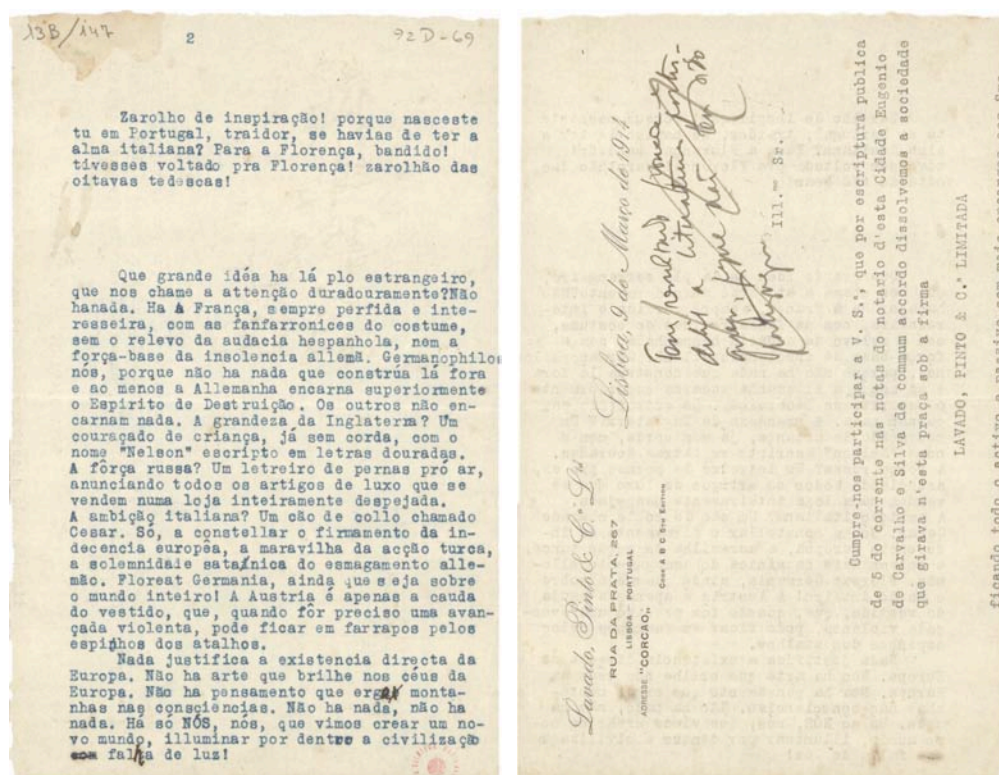 13B/147
2
92D-69
Zarolho de inspiração! porque nasceste
tu em Portugal, traidor, se havias de ter a
alma italiana? Para a Florença, bandido!
tivesses voltado pra Florença! zarolhão das
oitavas tedescas!
Que grande idéa ha lá plo estrangeiro,
que nos chame a attenção duradouramente?Não
hanada. Ha A França, sempre perfida e inte-
resseira, com as fanfarronices do costume,
sem o relevo da audacia hespanhola, nem a
força-base da insolencia allemã. Germanophilos
nós, porque não ha nada que constrúa lá fora
e ao menos a Allemanha encarna superiormente
o Espirito de Destruição. Os outros não en-
carnam nada. A grandeza da Inglaterra? Um
couraçado de criança, já sem corda, com o
nome "Nelson" escripto em letras douradas.
A fôrça russa? Um letreiro de pernas pró ar,
anunciando todos os artigos de luxo que se
vendem numa loja inteiramente despejada.
A ambição italiana? Um cão de collo chamado
Cesar. Só, a constellar o firmamento da in-
decencia europêa, a maravilha da acção turca,
a solemnidaie satanica do esmagamento alle-
mão. Floreat Germania, ainda que seja sobre
o mundo inteiro! A Austria é apenas a cauda
do vestido, que, quando fôr preciso uma avan-
çada violenta, pode ficar em farrapos pelos
espinhos dos atalhos.
Nada justifica a existencia directa da
Europa. Não ha arte que brilhe nos céus da
Europa. Não ha pensamento que erga monta-
nhas nas consciencias. Não ha nada, não ha
nada. Há só NÓS, nós, que vimos crear um no-
vo mundo, illuminar por dentro a civilização
com falta de luz!
Lavado, Pinto & C.ª Lda
RUA DA PRATA, 267
LISBOA - PORTUGAL
ADRESSE "CORCAO"
CODE A B C 5TH EDITION
Lisboa, 9 de Março de 1914
a literatura
não
Ill.mo Sr.
Cumpre-nos participar a V. S.ª, que por escriptura publica
de 5 do corrente nas notas do notario d'esta Cidade Eugenio
de Carvalho e Silva de commum accordo dissolvemos a sociedade
que girava n'esta praça sob a firma
LAVADO, PINTO & C.ª LIMITADA
ficando todo o activo e passivo